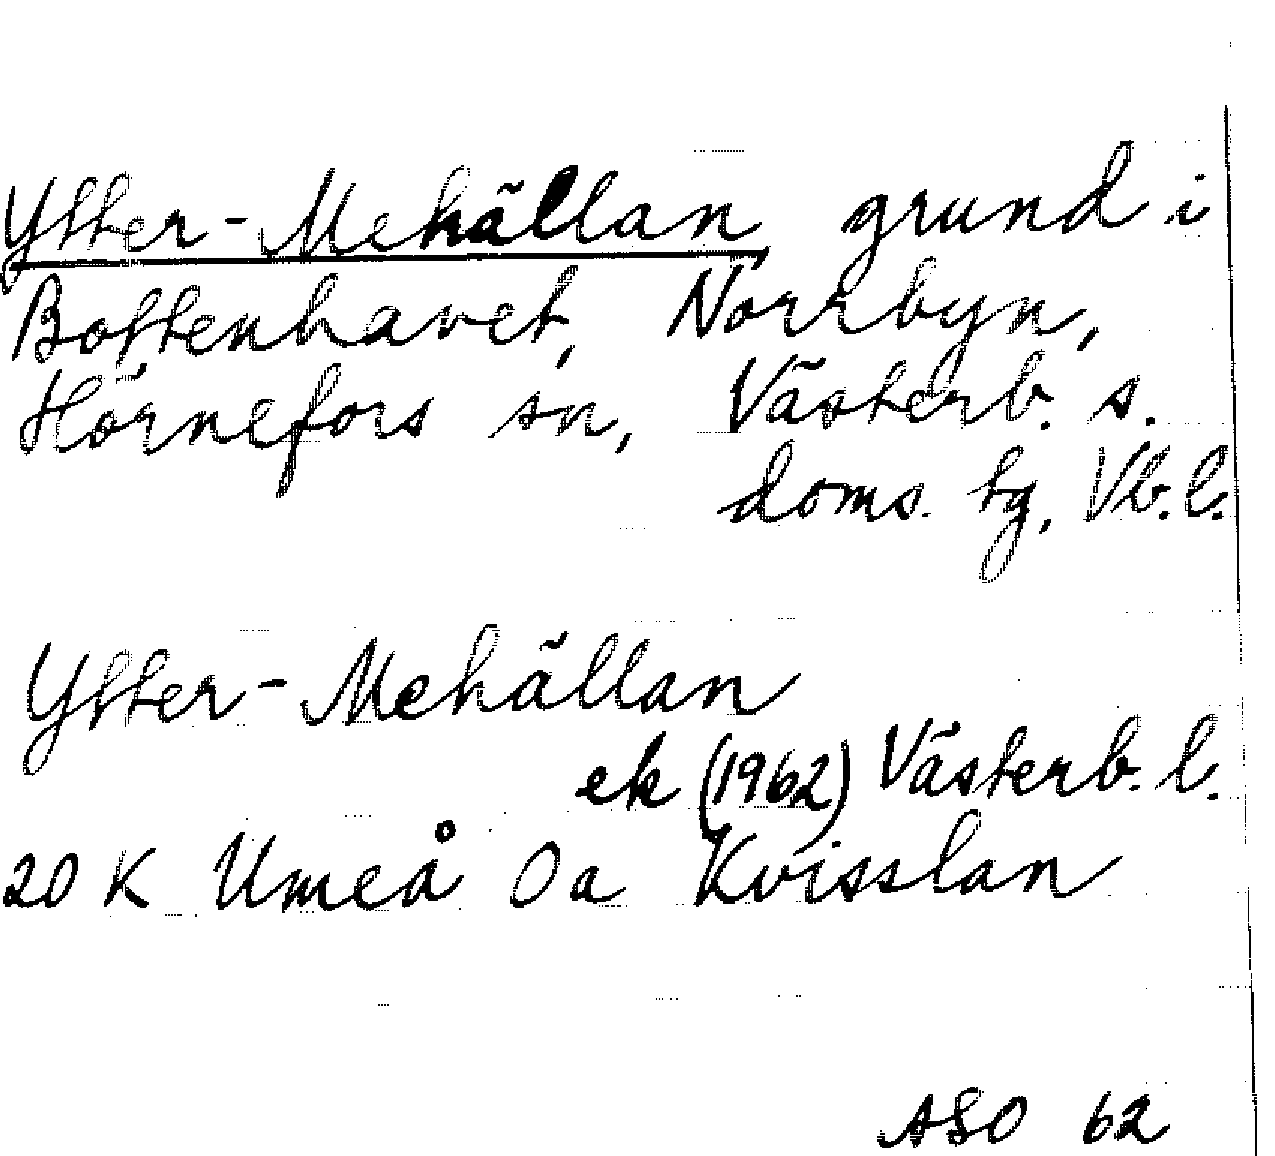 Ytter-Mehällan, grund i
Bottenhavet, Norrbyn,
Hörnefors sn, Västerb. s.
doms. tg, Vb.l.
Ytter-Mehällan
ek (1962) Västerb. l.
20 K Umeå 0a Kvisslan
ASO 62